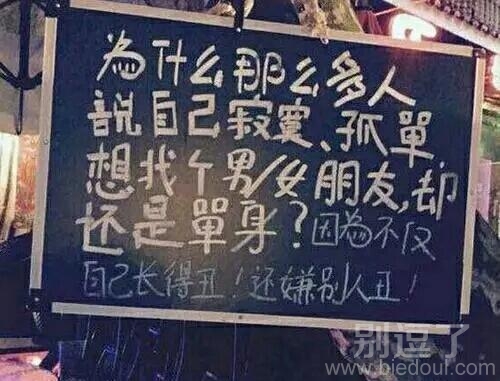 为什么那么多人
說自己寂寞、孤單,
想找个男/女朋友,却
还是單身?因为不仅
自己长得丑!还嫌别人丑!
别逗了
www.biedoul.com